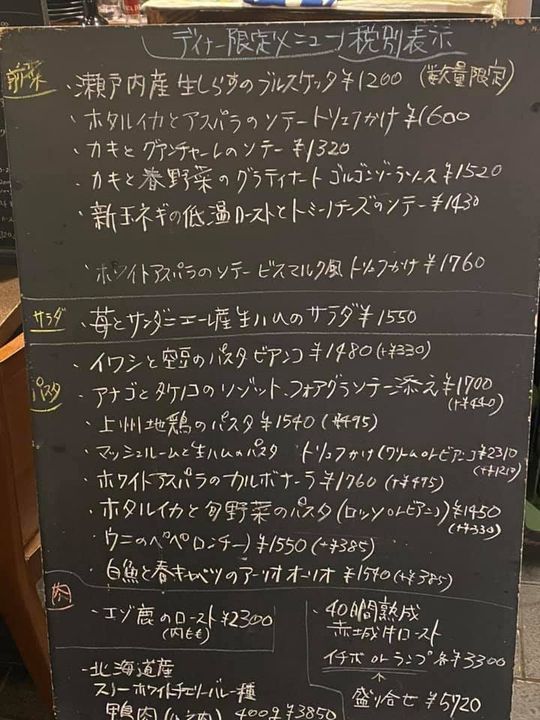 ディナー限定メニュー 税別表示
前菜
・瀬戸内産 生しらすのブルスケッタ ¥1200 (数量限定)
・ホタルイカとアスパラのソテー トリュフかけ ¥1600
・カキとグアンチャーレのソテー ¥1320
・カキと春野菜のグラティナート ゴルゴンゾーラソース ¥1520
・新玉ネギの低温ローストとトミーノチーズのソテー ¥1430
・ホワイトアスパラのソテー ビスマルク風 トリュフかけ ¥1760
サラダ
・苺とサンダニエーレ産生ハムのサラダ ¥1550
パスタ
・イワシと空豆のパスタ ビアンコ ¥1480 (+¥330)
・アナゴとタケノコのリゾット、フォアグラソテー添え ¥1700
(+¥440)
・上州地鶏のパスタ ¥1540 (+¥495)
・マッシュルームと生ハムのパスタ トリュフかけ (クリームorビアンコ) ¥2310
(+¥1210)
・ホワイトアスパラのカルボナーラ ¥1760 (+¥495)
・ホタルイカと旬野菜のパスタ (ロッソorビアンコ) ¥1450
(+¥330)
・ウニのペペロンチーノ ¥1550 (+¥385)
・白魚と春キャベツのアーリオオーリオ ¥1540 (+¥385)
肉
・エゾ鹿のロースト ¥2300
(内もも)
・北海道産
スノーホワイトチェリバレー種
鴨肉 400g ¥3850
・40日間熟成
赤城牛ロースト
イチボ or ランプ 各¥3300
盛り合せ ¥5720